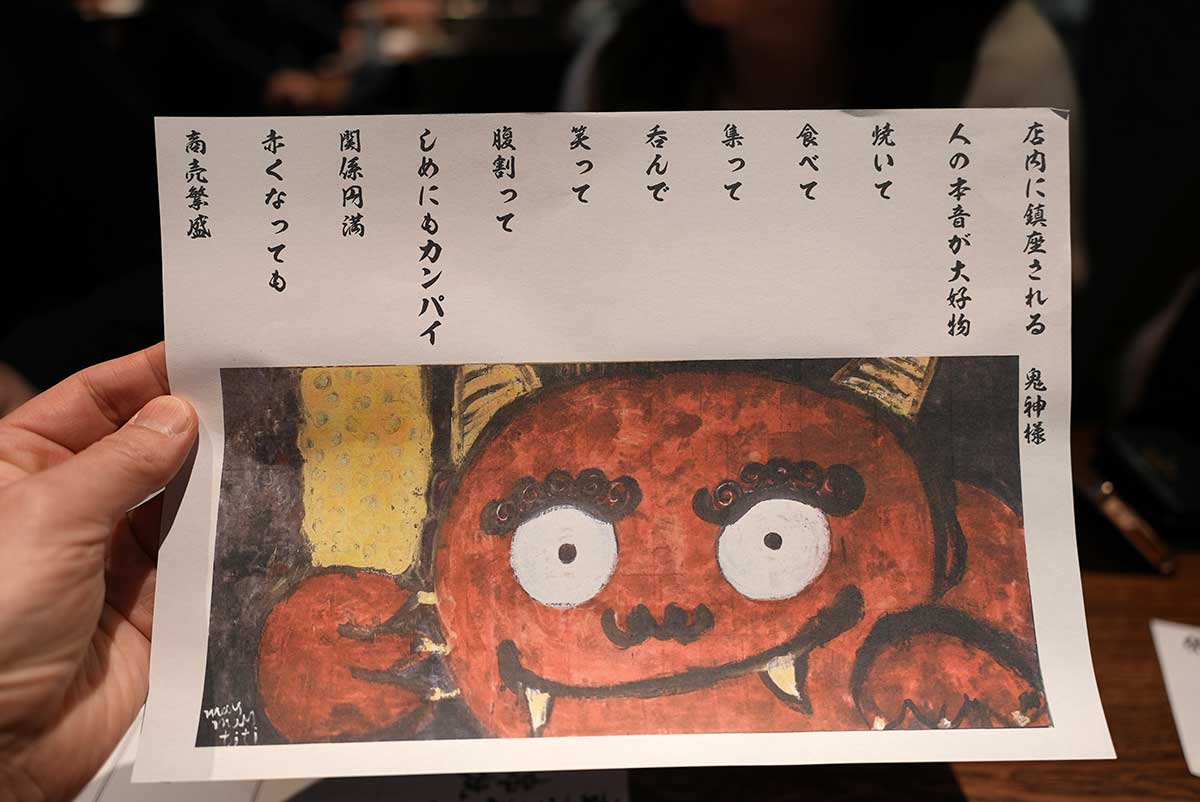 店内に鎮座される 鬼神様
人の本音が大好物
焼いて
食べて
集って
呑んで
笑って
腹割って
しめにもカンパイ
関係円満
赤くなっても
商売繁盛